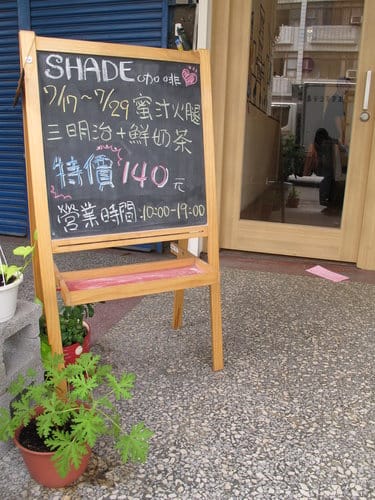 SHADE 咖啡
7/17~7/29 蜜汁火腿
三明治+鮮奶茶
特價 140元
營業時間:10:00-19:00